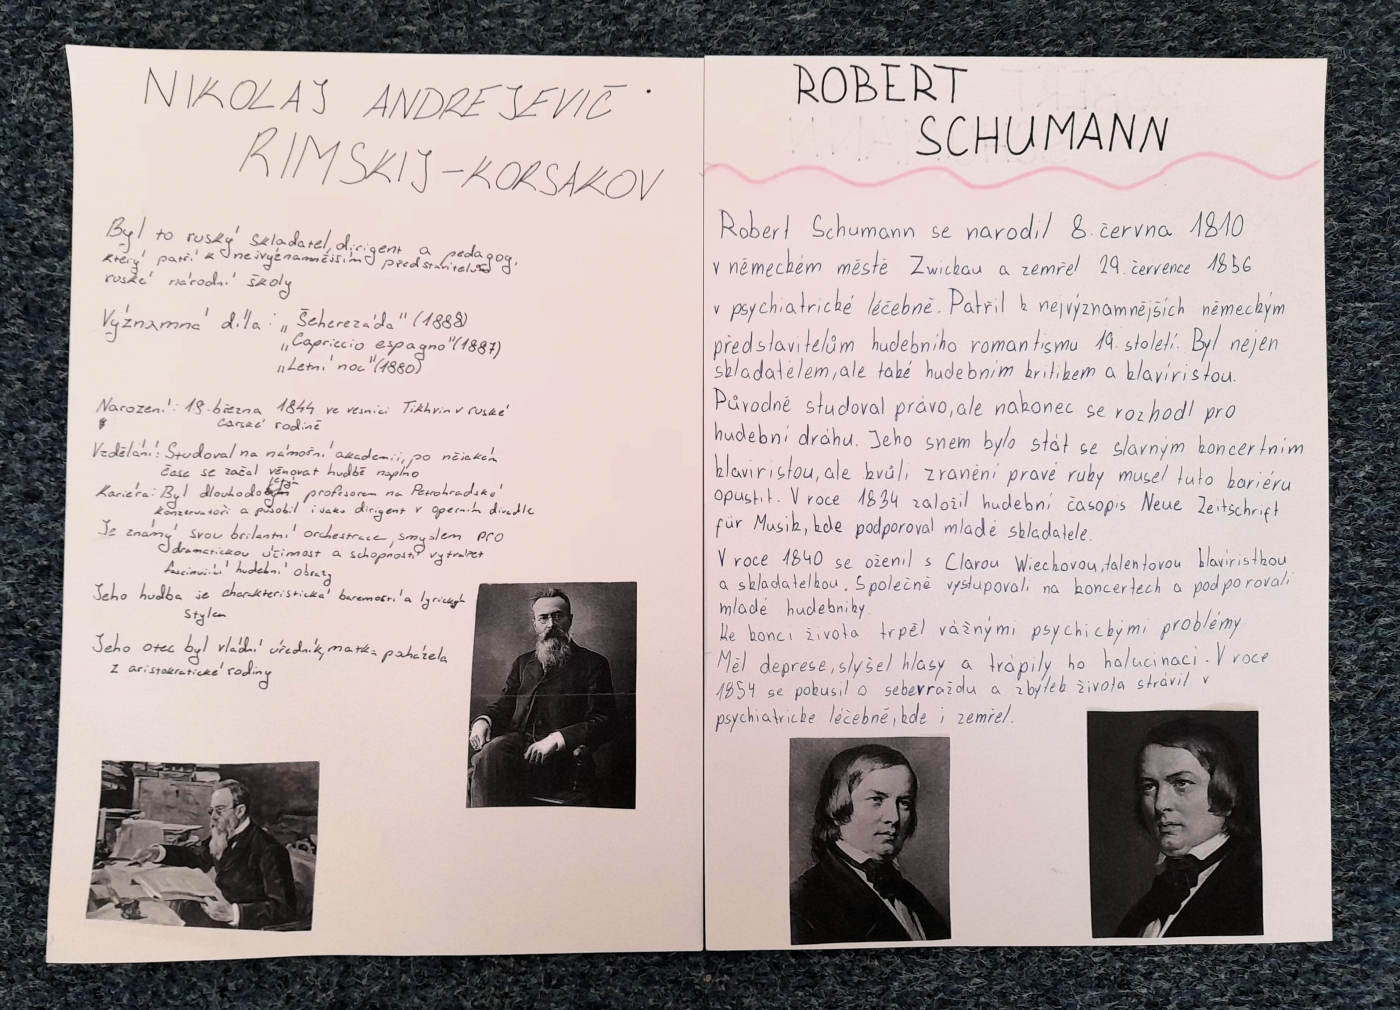 NIKOLAJ ANDREJEVIČ
RIMSKIJ-KORSAKOV
Byl to ruský skladatel, dirigent a pedagog,
který patří k nejvýznamnějším představitelům
ruské národní školy
Významná díla: „Šeherezáda" (1888)
„Capriccio espagno" (1887)
„Letní noc" (1880)
Narození: 18. března 1844 ve vesnici Tikhvin v ruské
carské rodině
Vzdělání: Studoval na námořní akademii, po nějakém
čase se začal věnovat hudbě naplno
Kariéra: Byl dlouhodobým profesorem na Petrohradské
konzervatoři a působil i jako dirigent v operním divadle
Je známý svou brilantní orchestrace, smyslem pro
dramatickou účimost a schopností vytvářet
fascinující hudební obrazy
Jeho hudba je charakteristická barevností a lyrickým
stylem
Jeho otec byl vládní úředník, matka pocházela
z aristokratické rodiny
ROBERT
SCHUMANN
Robert Schumann se narodil 8. června 1810
v německém městě Zwickau a zemřel 29. července 1856
v psychiatrické léčebně. Patřil k nejvýznamnějších německým
představitelům hudebního romantismu 19. století. Byl nejen
skladatelem, ale také hudebním kritikem a klavíristou.
Původně studoval právo, ale nakonec se rozhodl pro
hudební dráhu. Jeho snem bylo stát se slavným koncertním
klaviristou, ale kvůli zranění pravé ruky musel tuto kariéru
opustit. V roce 1834 založil hudební časopis Neue Zeitschrift
für Musik, kde podporoval mladé skladatele.
V roce 1840 se oženil s Clarou Wieckovou, talentovou klaviristkou
a skladatelkou. Společně vystupovali na koncertech a podporovali
mladé hudebníky.
Ke konci života trpěl vážnými psychickými problémy
Měl deprese, slyšel hlasy a trápily ho halucinaci. V roce
1854 se pokusil o sebevraždu a zbytek života strávil v
psychiatricke léčebně, kde i zemřel.